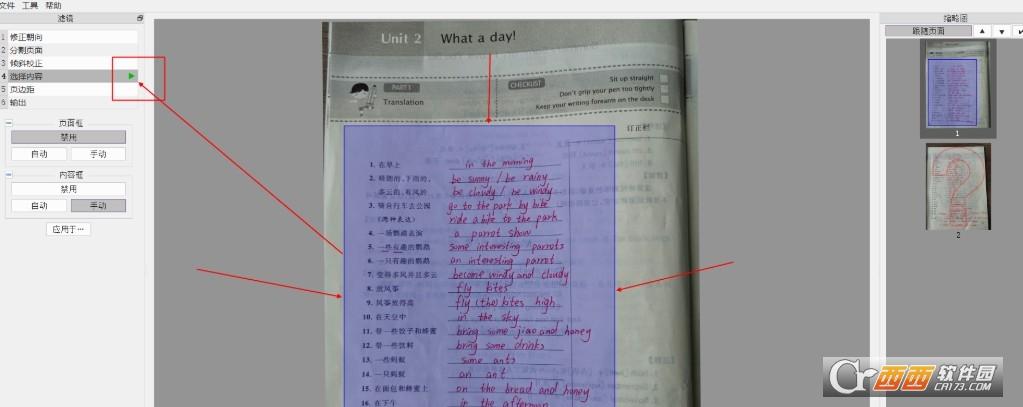 文件 工具 帮助
滤镜
1 修正朝向
2 分割页面
3 倾斜校正
4 选择内容
5 页边距
6 输出
页面框
禁用
自动 手动
内容框
禁用
自动 手动
应用于…
Unit 2 What a day!
PART 1
Translation
CHECKLIST
Sit up straight
Don't grip your pen too tightly
Keep your writing forearm on the desk
订正栏
1. 在早上 in the morning
2. 晴朗的,下雨的, be sunny / be rainy
多云的,有风的 be cloudy / be windy
3. 骑自行车去公园 go to the park by bike
(两种表达) ride a bike to the park
4. 一场鹦鹉表演 a parrot show
5. 一些有趣的鹦鹉 some interesting parrots
6. 一只有趣的鹦鹉 an interesting parrot
7. 变得多风并且多云 become windy and cloudy
8. 放风筝 fly kites
9. 风筝放得高 fly (the) kites high
10. 在天空中 in the sky
11. 带一些饺子和蜂蜜 bring some jiao and honey
12. 带一些饮料 bring some drinks
13. 一些蚂蚁 some ants
14. 一只蚂蚁 an ant
15. 在面包和蜂蜜上 on the bread and honey
16. 在下午 in the afternoon
缩略图
跟随页面
1
2
西西软件园
CR173.COM